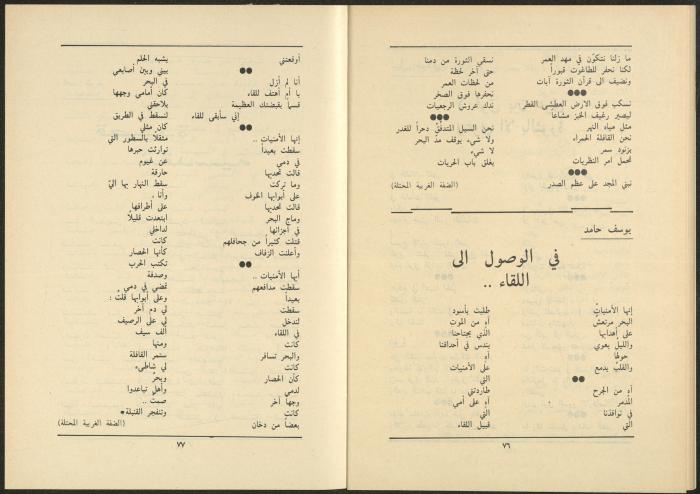 ما زلنا نتكوّن في مهد العمر
لكنا نحفر للطاغوت قبوراً
ونضيف الى قرآن الثورة آيات
نسكب فوق الارض العطشى القطر
ليصير رغيف الخبز مشاعاً
مثل مياه النهر
نحن القافلة الحمراء
بزنود سمر
نحمل امر النظريات
نبني المجد على عظم الصدر
نسقي الثورة من دمنا
حتى آخر لحظة
من لحظات العمر
نحفرها فوق الصخر
ندك عروش الرجعيات
نحن السيل المتدفّق دحراً للغدر
ولا شيء يوقف مدّ البحر
لا شيء
يغلق باب الحريات
(الضفة الغربية المحتلة)
يوسف حامد
في الوصول الى
اللقاء ..
إنها الأمنياتُ
البحر مرتعشٌ
على أهدابها
والليل يعوي
حولها
والقلب يدمع
آهِ من الجرح
المدمر
في نوافذنا
التي
طلبت بأسود
آهِ من الموتِ
الذي يجتاحنا
يندس في أحداقنا
آهِ
على الأمنيات
التي
طاردتني
آهِ على أمي
التي
قبيل اللقاء
٧٦
أوقعتني
أنا لم أزل
يا أم أهتف للقاء
قسماً بقبضتك العظيمة
إني سأبقى للقاء
إنها الأمنيات ..
سقطت بعيداً
في دمي
قالت تحديها
وما تركت
على أبوابها الخوف
قالت تحديها
وماج البحر
في أجزائها
قتلت كثيراً من جحافلهم
وأعلنت الزفاف
أيها الأمنيات ..
سقطت مدافعهم
بعيداً
سقطت
لتدخل
في اللقاء
كانت
والبحر تسافر
كانت
كأن الحصار
لدمي
وجهاً آخر
كانت
بعضاً من دخان
يشبه الحلم
بيني وبين أصابعي
في البحر
كان أمامي وجهها
يلاحقني
لنسقط في الطريق
كان مثلي
مثقلاً بالسطور التي
توارثت حبرها
عن غيوم
حارقة
سقط النهار بها اليّ
وأنا
على أطرافها
ابتعدت قليلاً
لداخلي
كانت
كأنها الحصار
تكتب الحرب
وصدفة
تمضي في دمي
وعلى أبوابها قلت :
لي دم آخر
لي على الرصيف
ألف سيف
ومنها
ستمر القافلة
لي شاطىء
وبحرٌ
وأهلٌ تباعدوا
صمت ..
وتنفجر القنبلة
(الضفة الغربية المحتلة)
٧٧